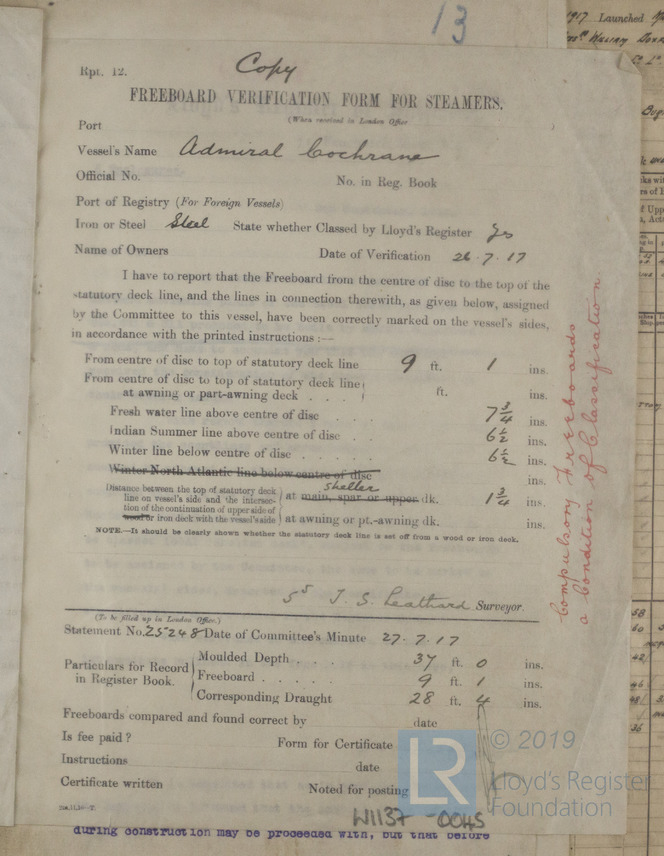 13
Rpt. 12.
Copy
FREEBOARD VERIFICATION FORM FOR STEAMERS.
(When received in London Office
Port
Vessel's Name Admiral Cochrane
Official No.
No. in Reg. Book
Port of Registry (For Foreign Vessels)
Iron or Steel Steel State whether Classed by Lloyd's Register Yes
Name of Owners Date of Verification 26.7.17
I have to report that the Freeboard from the centre of disc to the top of the
statutory deck line, and the lines in connection therewith, as given below, assigned
by the Committee to this vessel, have been correctly marked on the vessel's sides,
in accordance with the printed instructions :—
From centre of disc to top of statutory deck line 9 ft. 1 ins.
From centre of disc to top of statutory deck line
at awning or part-awning deck . . . ft. ins.
Fresh water line above centre of disc . . . 7 3/4 ins.
Indian Summer line above centre of disc . . 6 1/2 ins.
Winter line below centre of disc . . . . 6 1/2 ins.
Winter North Atlantic line below centre of disc ins.
Distance between the top of statutory deck
line on vessel's side and the intersec-
tion of the continuation of upper side of
wood or iron deck with the vessel's side
shelter
at main, spar or upper dk. 1 3/4 ins.
at awning or pt.-awning dk. ins.
NOTE.—It should be clearly shown whether the statutory deck line is set off from a wood or iron deck.
J. S. Leathard Surveyor.
(To be filled up in London Office.)
Statement No. 25248 Date of Committee's Minute 27.7.17
Particulars for Record
in Register Book.
Moulded Depth . . . 37 ft. 0 ins.
Freeboard . . . . . 9 ft. 1 ins.
Corresponding Draught 28 ft. 4 ins.
Freeboards compared and found correct by date
Is fee paid ? Form for Certificate
Instructions date
Certificate written Noted for posting
during construction may be proceeded with, but that before
Compulsory Freeboards
a condition of Classification
W1137-0045
LR
© 2019
Lloyd's Register
Foundation
1917 Launched
William